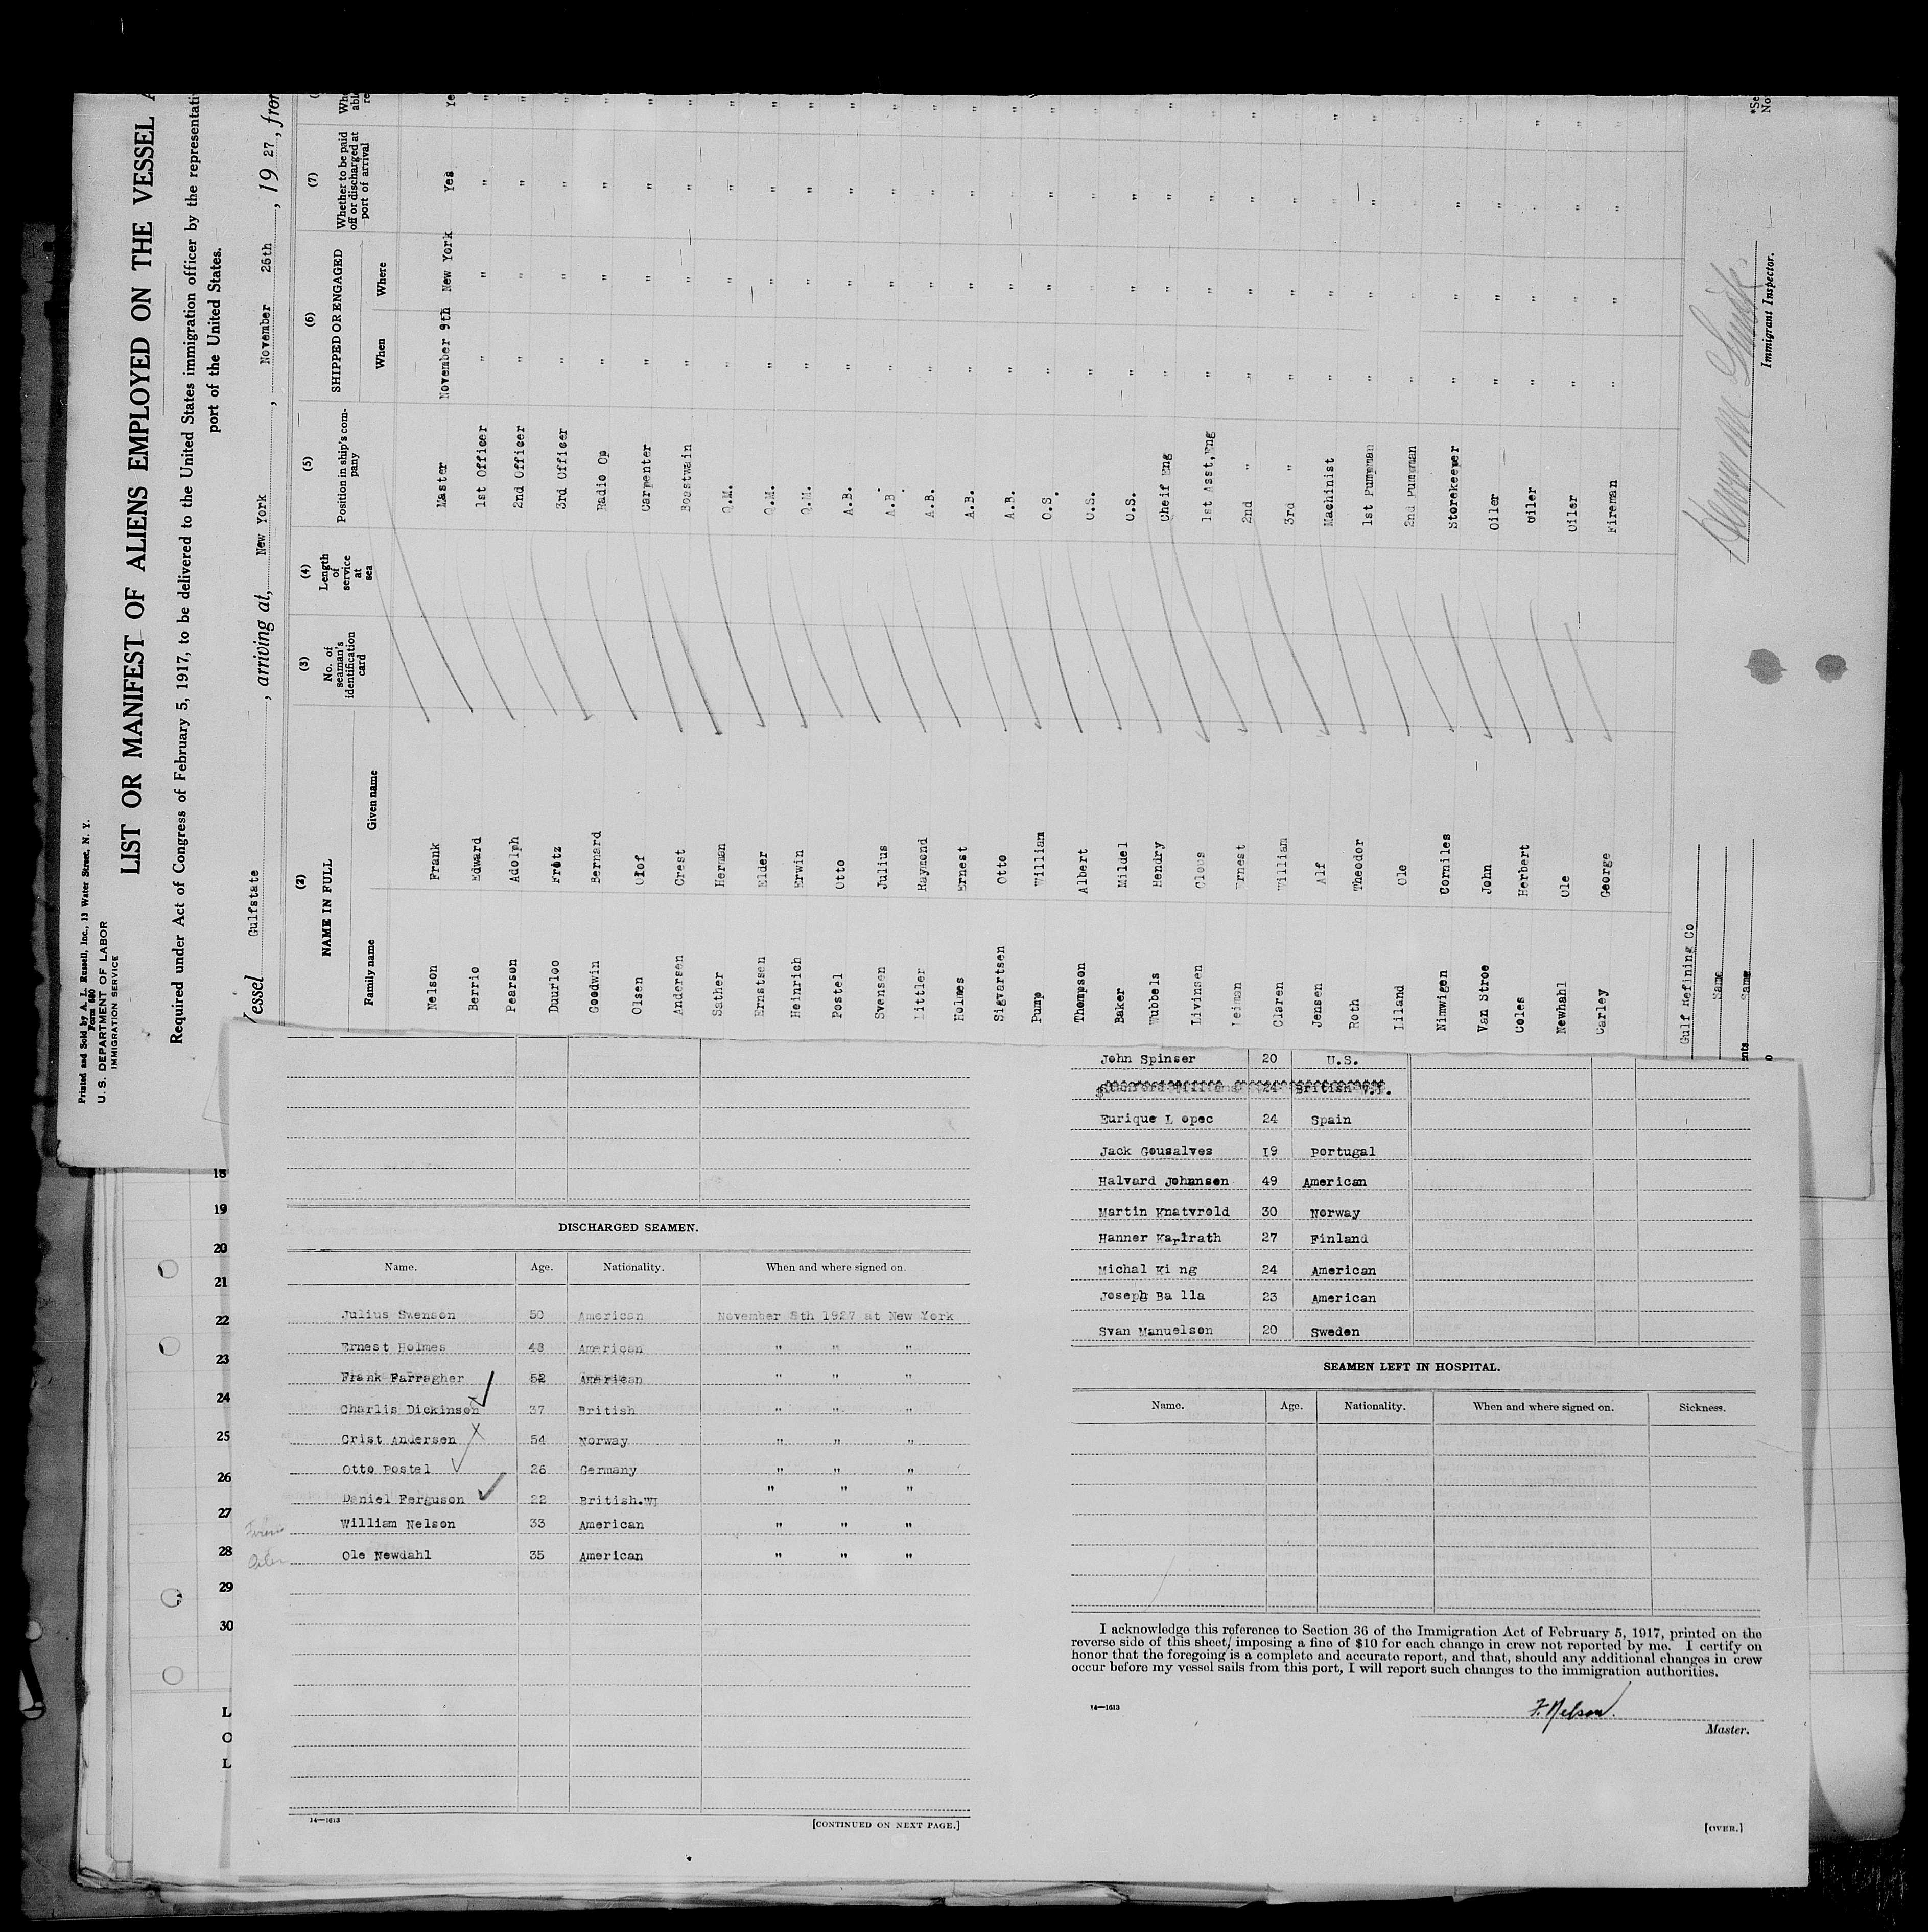 Printed and Sold by A. L. Russell, Inc., 13 Water Street, N. Y.
Form 680
U. S. DEPARTMENT OF LABOR
IMMIGRATION SERVICE
LIST OR MANIFEST OF ALIENS EMPLOYED ON THE VESSEL
Required under Act of Congress of February 5, 1917, to be delivered to the United States immigration officer by the representativ
port of the United States.
essel Gulfstate , arriving at, New York , November 25th , 19 27 , from
(2) (3) (4) (5) (6) (7)
NAME IN FULL
Family name Given name
No. of seaman's identification card
Length of service at sea
Position in ship's company
SHIPPED OR ENGAGED
When Where
Whether to be paid off or discharged at port of arrival
Nelson Frank Master November 9th New York Yes Ye
Berrio Edward 1st Officer " " " "
Pearson Adolph 2nd Officer " " " "
Duurloo Fritz 3rd Officer " " " "
Goodwin Bernard Radio Op " " " "
Olsen Olof Carpenter " " " "
Andersen Crest Boastwain " " " "
Sather Herman Q.M. " " " "
Ernstsen Elder Q.M. " " " "
Heinrich Erwin Q.M. " " " "
Postel Otto A.B. " " " "
Svensen Julius A.B. " " " "
Littler Raymond A.B. " " " "
Holmes Ernest A.B. " " " "
Sigvartsen Otto A.B. " " " "
Pump William O.S. " " " "
Thompson Albert O.S. " " " "
Baker Mildel O.S. " " " "
Wubbels Hendry Cheif Eng " " " "
Livinsen Clous 1st Asst,Eng " " " "
Leiman Ernest 2nd " " " " "
Claren William 3rd " " " " "
Jensen Alf Machinist " " " "
Roth Theodor 1st Pumpman " " " "
Liland Ole 2nd Pumpman " " " "
Nimwigen Corniles Storekeeper " " " "
Van Stroe John Oiler " " " "
Coles Herbert Oiler " " " "
Newhahl Ole Oiler " " " "
Carley George Fireman " " " "
Gulf Refining Co
Same
Same
Henry M
Immigrant Inspector.
18
19
20
21
22
23
24
25
26
27
28
29
30
L
O
L
DISCHARGED SEAMEN.
Name. Age. Nationality. When and where signed on.
Julius Swenson 50 American November 8th 1927 at New York
Ernest Holmes 48 American " " "
Frank Farragher 52 American " " "
Charlis Dickinson 37 British " " "
Crist Andersen 54 Norway " " "
Otto Postel 26 Germany " " "
Daniel Ferguson 22 British.WI " " "
William Nelson 33 American " " "
Ole Newdahl 35 American " " "
14—1613
[CONTINUED ON NEXT PAGE.]
John Spinser 20 U.S.
24 British W.I.
Eurique L opec 24 Spain
Jack Gousalves 19 Portugal
Halvard Johansen 49 American
Martin Knatvrold 30 Norway
Hanner Karlrath 27 Finland
Michal Ki ng 24 American
Joseph Ba lla 23 American
Svan Manuelson 20 Sweden
SEAMEN LEFT IN HOSPITAL.
Name. Age. Nationality. When and where signed on. Sickness.
I acknowledge this reference to Section 36 of the Immigration Act of February 5, 1917, printed on the
reverse side of this sheet, imposing a fine of $10 for each change in crew not reported by me. I certify on
honor that the foregoing is a complete and accurate report, and that, should any additional changes in crew
occur before my vessel sails from this port, I will report such changes to the immigration authorities.
14—1613
F. Nelson.
Master.
[OVER.]